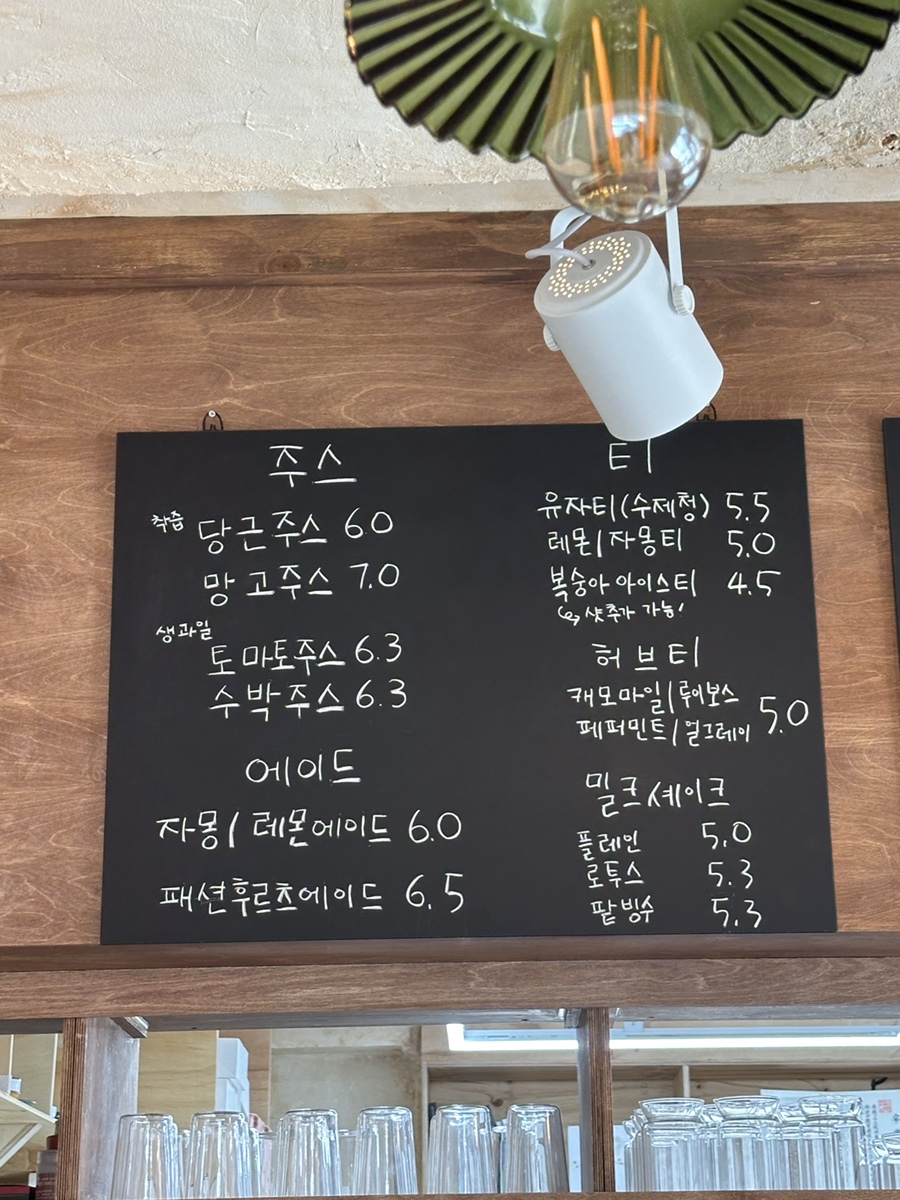 주스
착즙
당근주스 6.0
망고주스 7.0
생과일
토마토주스 6.3
수박주스 6.3
에이드
자몽/레몬에이드 6.0
패션후르츠에이드 6.5
티
유자티(수제청) 5.5
레몬/자몽티 5.0
복숭아아이스티 4.5
↪ 샷추가 가능!
허브티
캐모마일/루이보스
페퍼민트/얼그레이 5.0
밀크셰이크
플레인 5.0
로투스 5.3
팥빙수 5.3